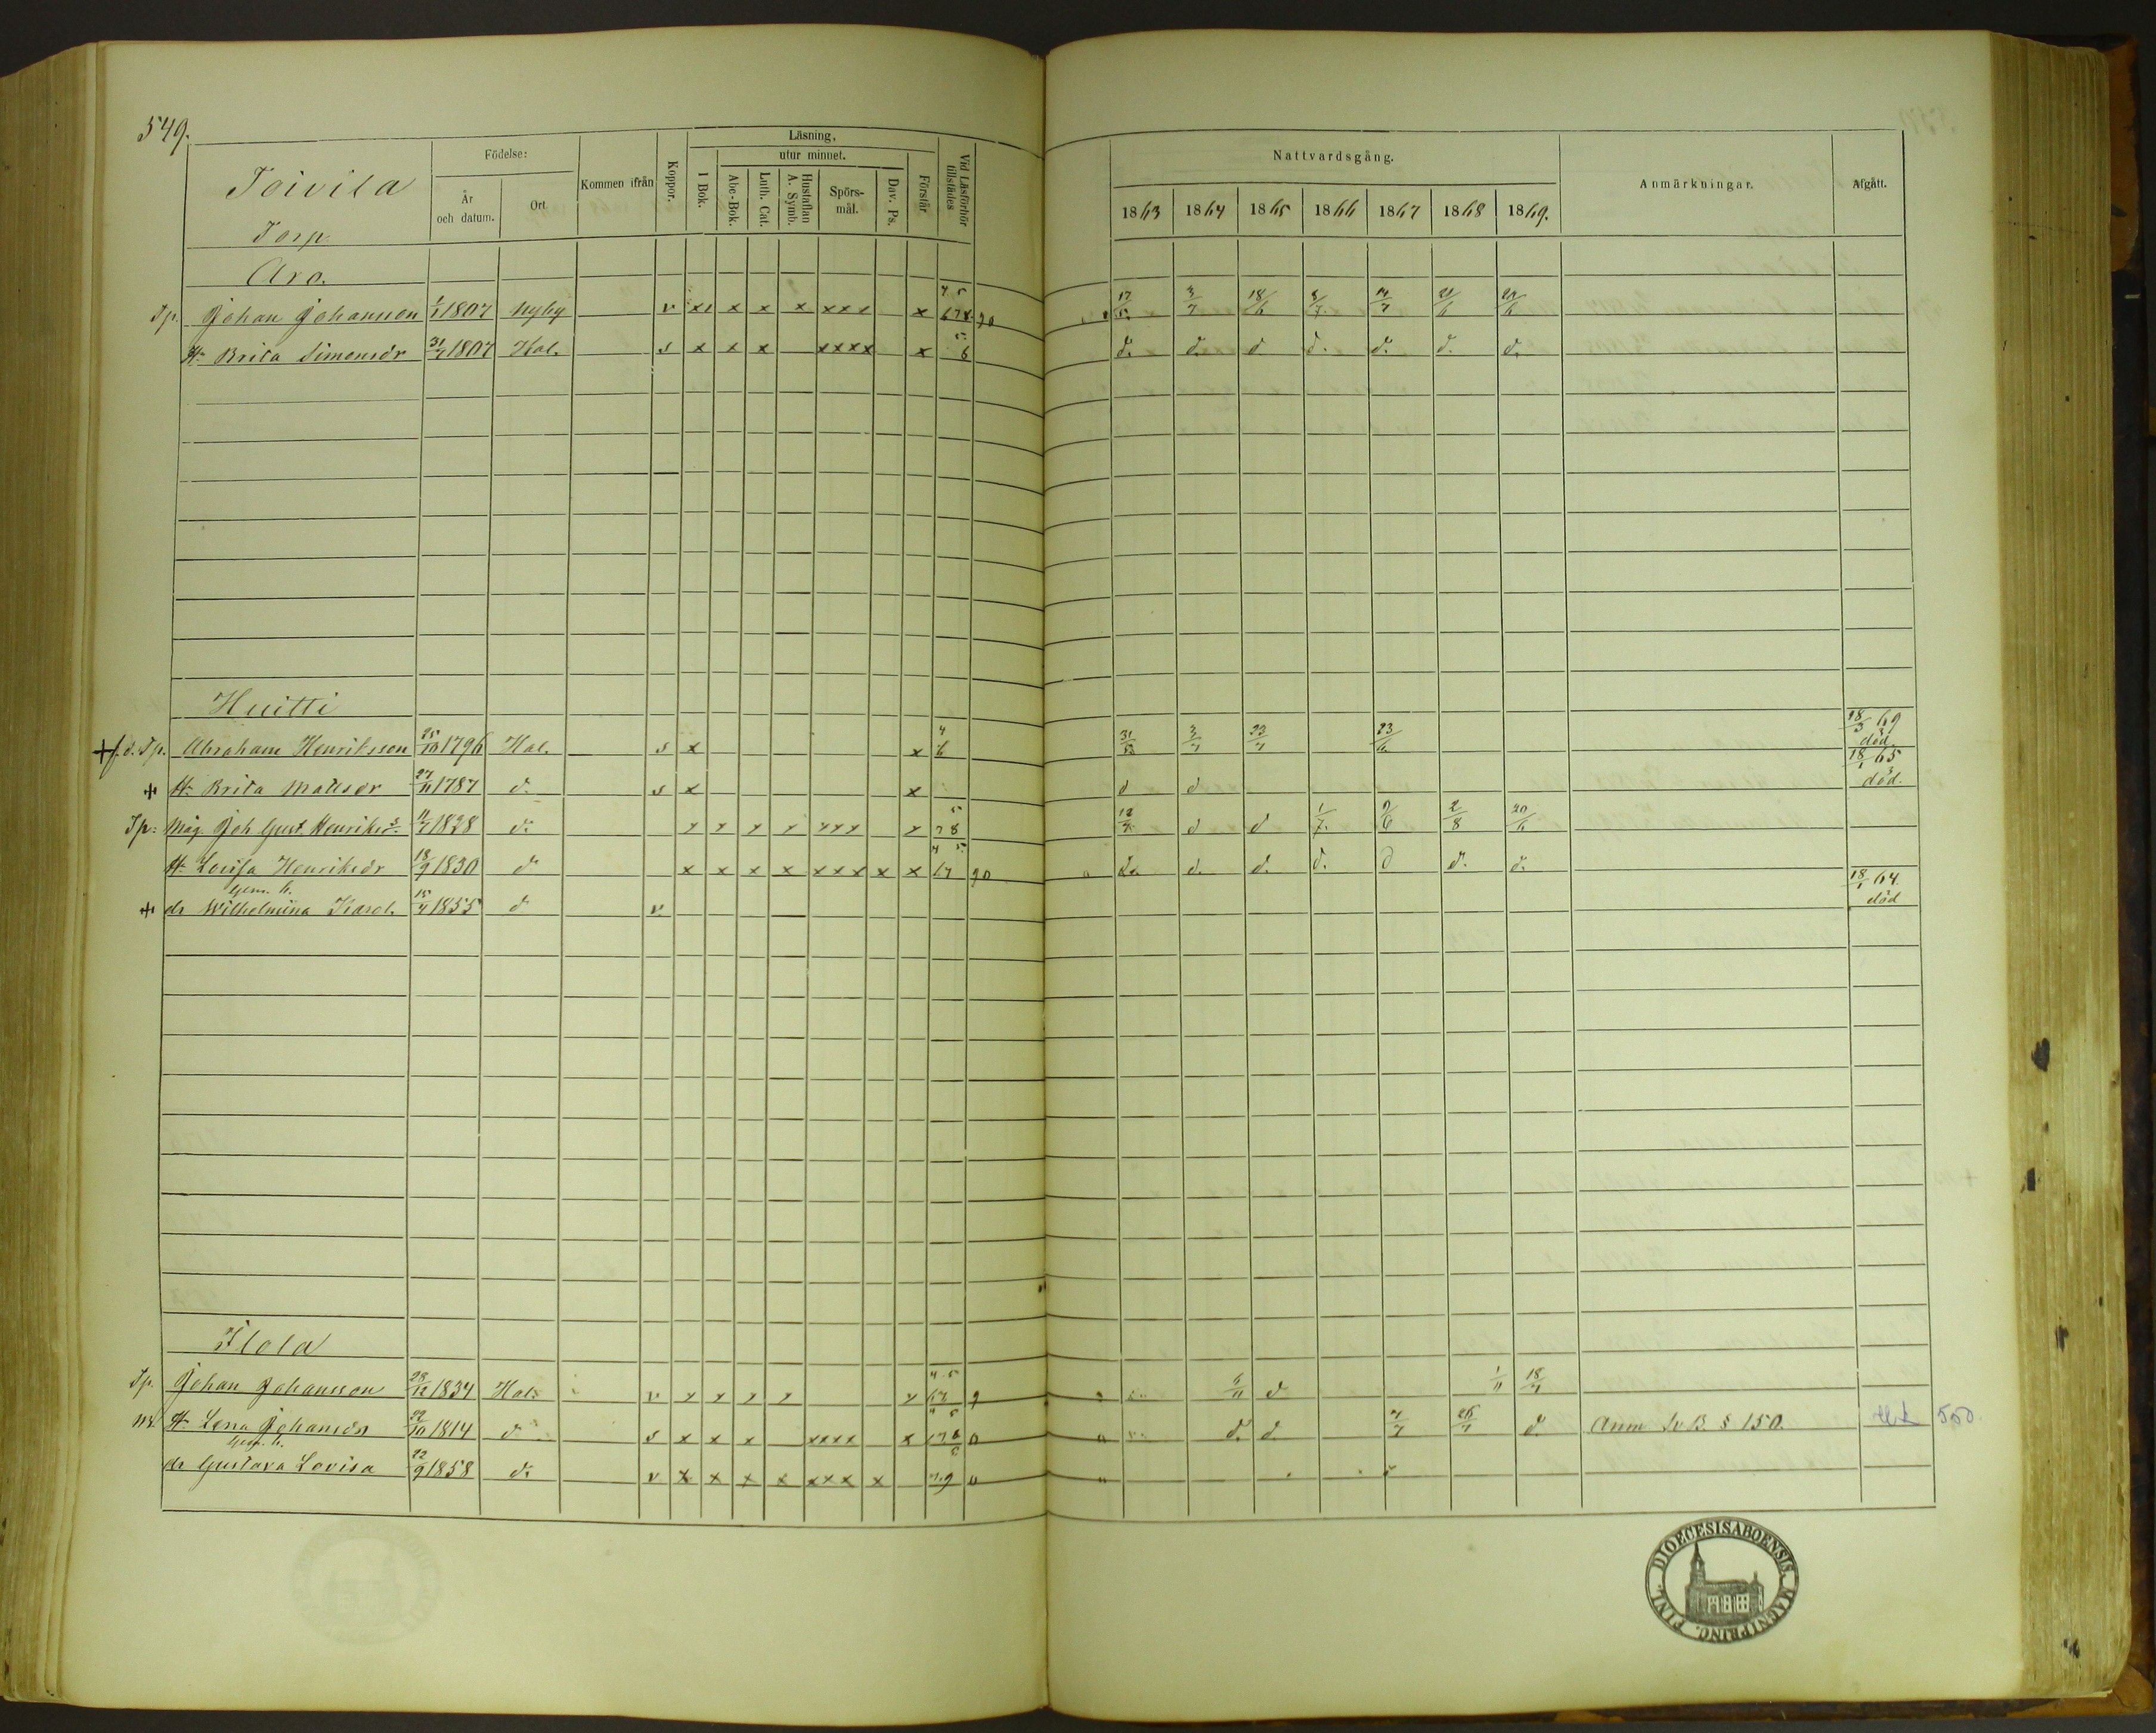 549.
Toivila
Torp
Födelse:
År och datum.
Ort
Kommen ifrån
Koppor.
Läsning,
I Bok.
utur minnet.
Abc-Bok.
Luth. Cat.
Hustaflan A. Symb.
Spörs-mål.
Dav. Ps.
Förstår
Vid Läsförhör tillstädes
Nattvardsgång.
1863 1864 1865 1866 1867 1868 1869.
Anmärkningar.
Afgått.
Aro.
Tp. Johan Johansson 1/1 1807 Nyby v xx x x x xxx x
H. Brita Simonsdr 31/7 1807 Hal. s x x x xxxx x 6 d. d. d d. d. d. d.
Huitti
+ f.d. Tp. Abraham Henriksson 25/10 1796 Hal. s x x 3/7 23/6 18/3 69 död
+ H. Brita Matlsdr 1787 d. s x x d d 18/1 65 död.
Tp: Måg. Joh Gust. Henrikss. 1828 d. x x x x xxx x 78 d d 1/7. 2/8 20/6
H. Lovisa Henriksdr 18/9 1830 d x x x x xxx x x 67 d. d. d. d. d d. d.
gem. b.
+ dr Wilhelmina Karol. 15/4 1855 d v 18/1 64. död
Ilola
Tp. Johan Johansson 28/12 1834 Hal. v x x x x x 6/11 d 1/11
H. Lena Johansdr 22/10 1814 d s x x x xxxx x d. d. d. Anm Sv B. § 150. 550.
gem. b.
dr Gustava Lovisa 12/9 1858 d. v x x x x xxx x
DIOECESIS ABOENSIS. MAGNI PRINC. FINL.